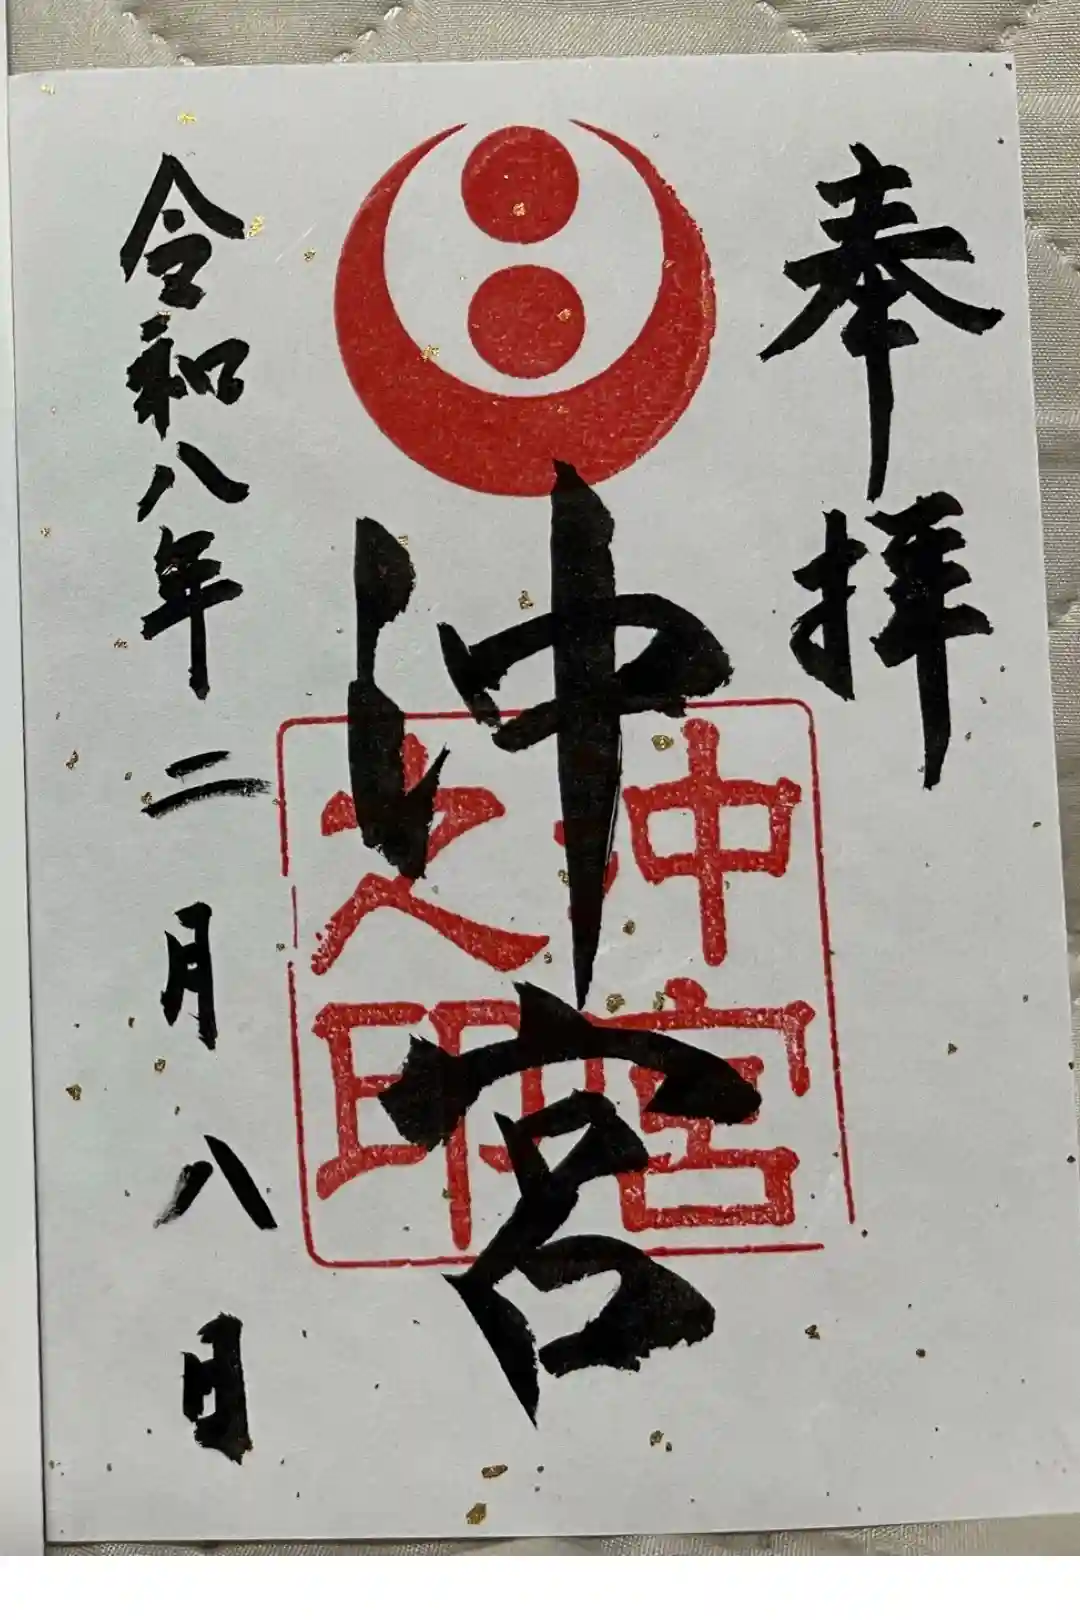 奉拝
沖宮
沖宮之印
令和八年二月八日